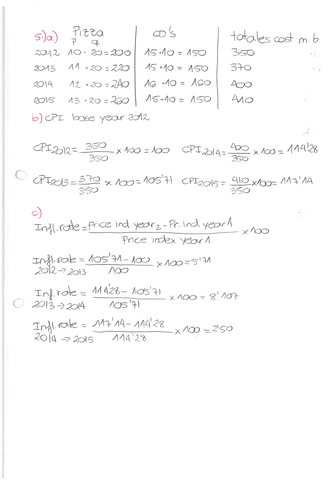 5.)a) Pizza CD's totales cost m.b
p q
2012 10 · 20 = 200 15 · 10 = 150 350
2013 11 · 20 = 220 15 · 10 = 150 370
2014 12 · 20 = 240 16 · 10 = 160 400
2015 13 · 20 = 260 15 · 10 = 150 410
b) CPI base year 2012
CPI2012 = 350/350 x 100 = 100 CPI2014 = 400/350 x 100 = 114'28
CPI2013 = 370/350 x 100 = 105'71 CPI2015 = 410/350 x 100 = 117'14
c)
Infl. rate = Price ind year2 - Pr. ind year1 / Price index year 1 x 100
Infl. rate 2012 → 2013 = 105'71 - 100 / 100 x 100 = 5'71
Inf. rate 2013 → 2014 = 114'28 - 105'71 / 105'71 x 100 = 8'107
Infl. rate 2014 → 2015 = 117'14 - 114'28 / 114'28 x 100 = 2'50